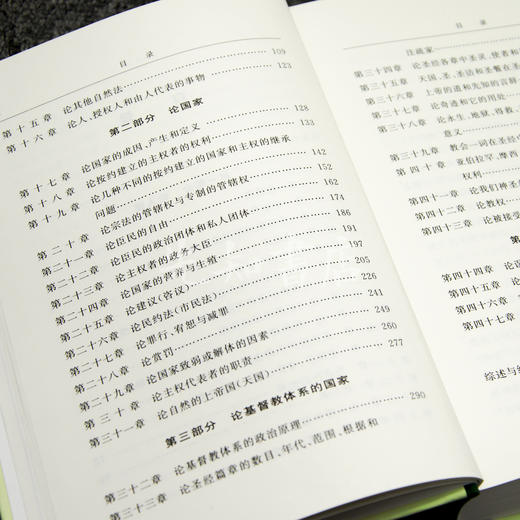 目 录
第十五章 论其他自然法 109
第十六章 论人、授权人和由人代表的事物 123
第二部分 论国家
第十七章 论国家的成因、产生和定义 128
第十八章 论按约建立的主权者的权利 133
第十九章 论几种不同的按约建立的国家和主权的继承
问题 142
第二十章 论宗法的管辖权与专制的管辖权 152
第二十一章 论臣民的自由 162
第二十二章 论臣民的政治团体和私人团体 174
第二十三章 论主权者的政务大臣 186
第二十四章 论国家的营养与生殖 191
第二十五章 论建议(咨议) 197
第二十六章 论民约法(市民法) 205
第二十七章 论罪行、宥恕与减罪 226
第二十八章 论赏罚 241
第二十九章 论国家致弱或解体的因素 249
第三十章 论主权代表者的职责 260
第三十一章 论自然的上帝国(天国) 277
第三部分 论基督教体系的国家
第三十二章 论基督教体系的政治原理 290
第三十三章 论圣经篇章的数目、年代、范围、根据和
目 录
注疏家
第三十四章 论圣经各章中圣灵、使者和
第三十五章 天国、圣、圣洁和圣餐在圣
第三十六章 上帝的道和先知的言辞
第三十七章 论奇迹和它的用处
第三十八章 论永生、地狱、得救、
意义
第三十九章 教会一词在圣经
第四十章 亚伯拉罕、摩西
权利
第四十一章 论我们神圣
第四十二章 论教权
第四十三章 论被接受
第
第四十四章 论
第四十五章 论
第四十六章
第四十七章
综述与结